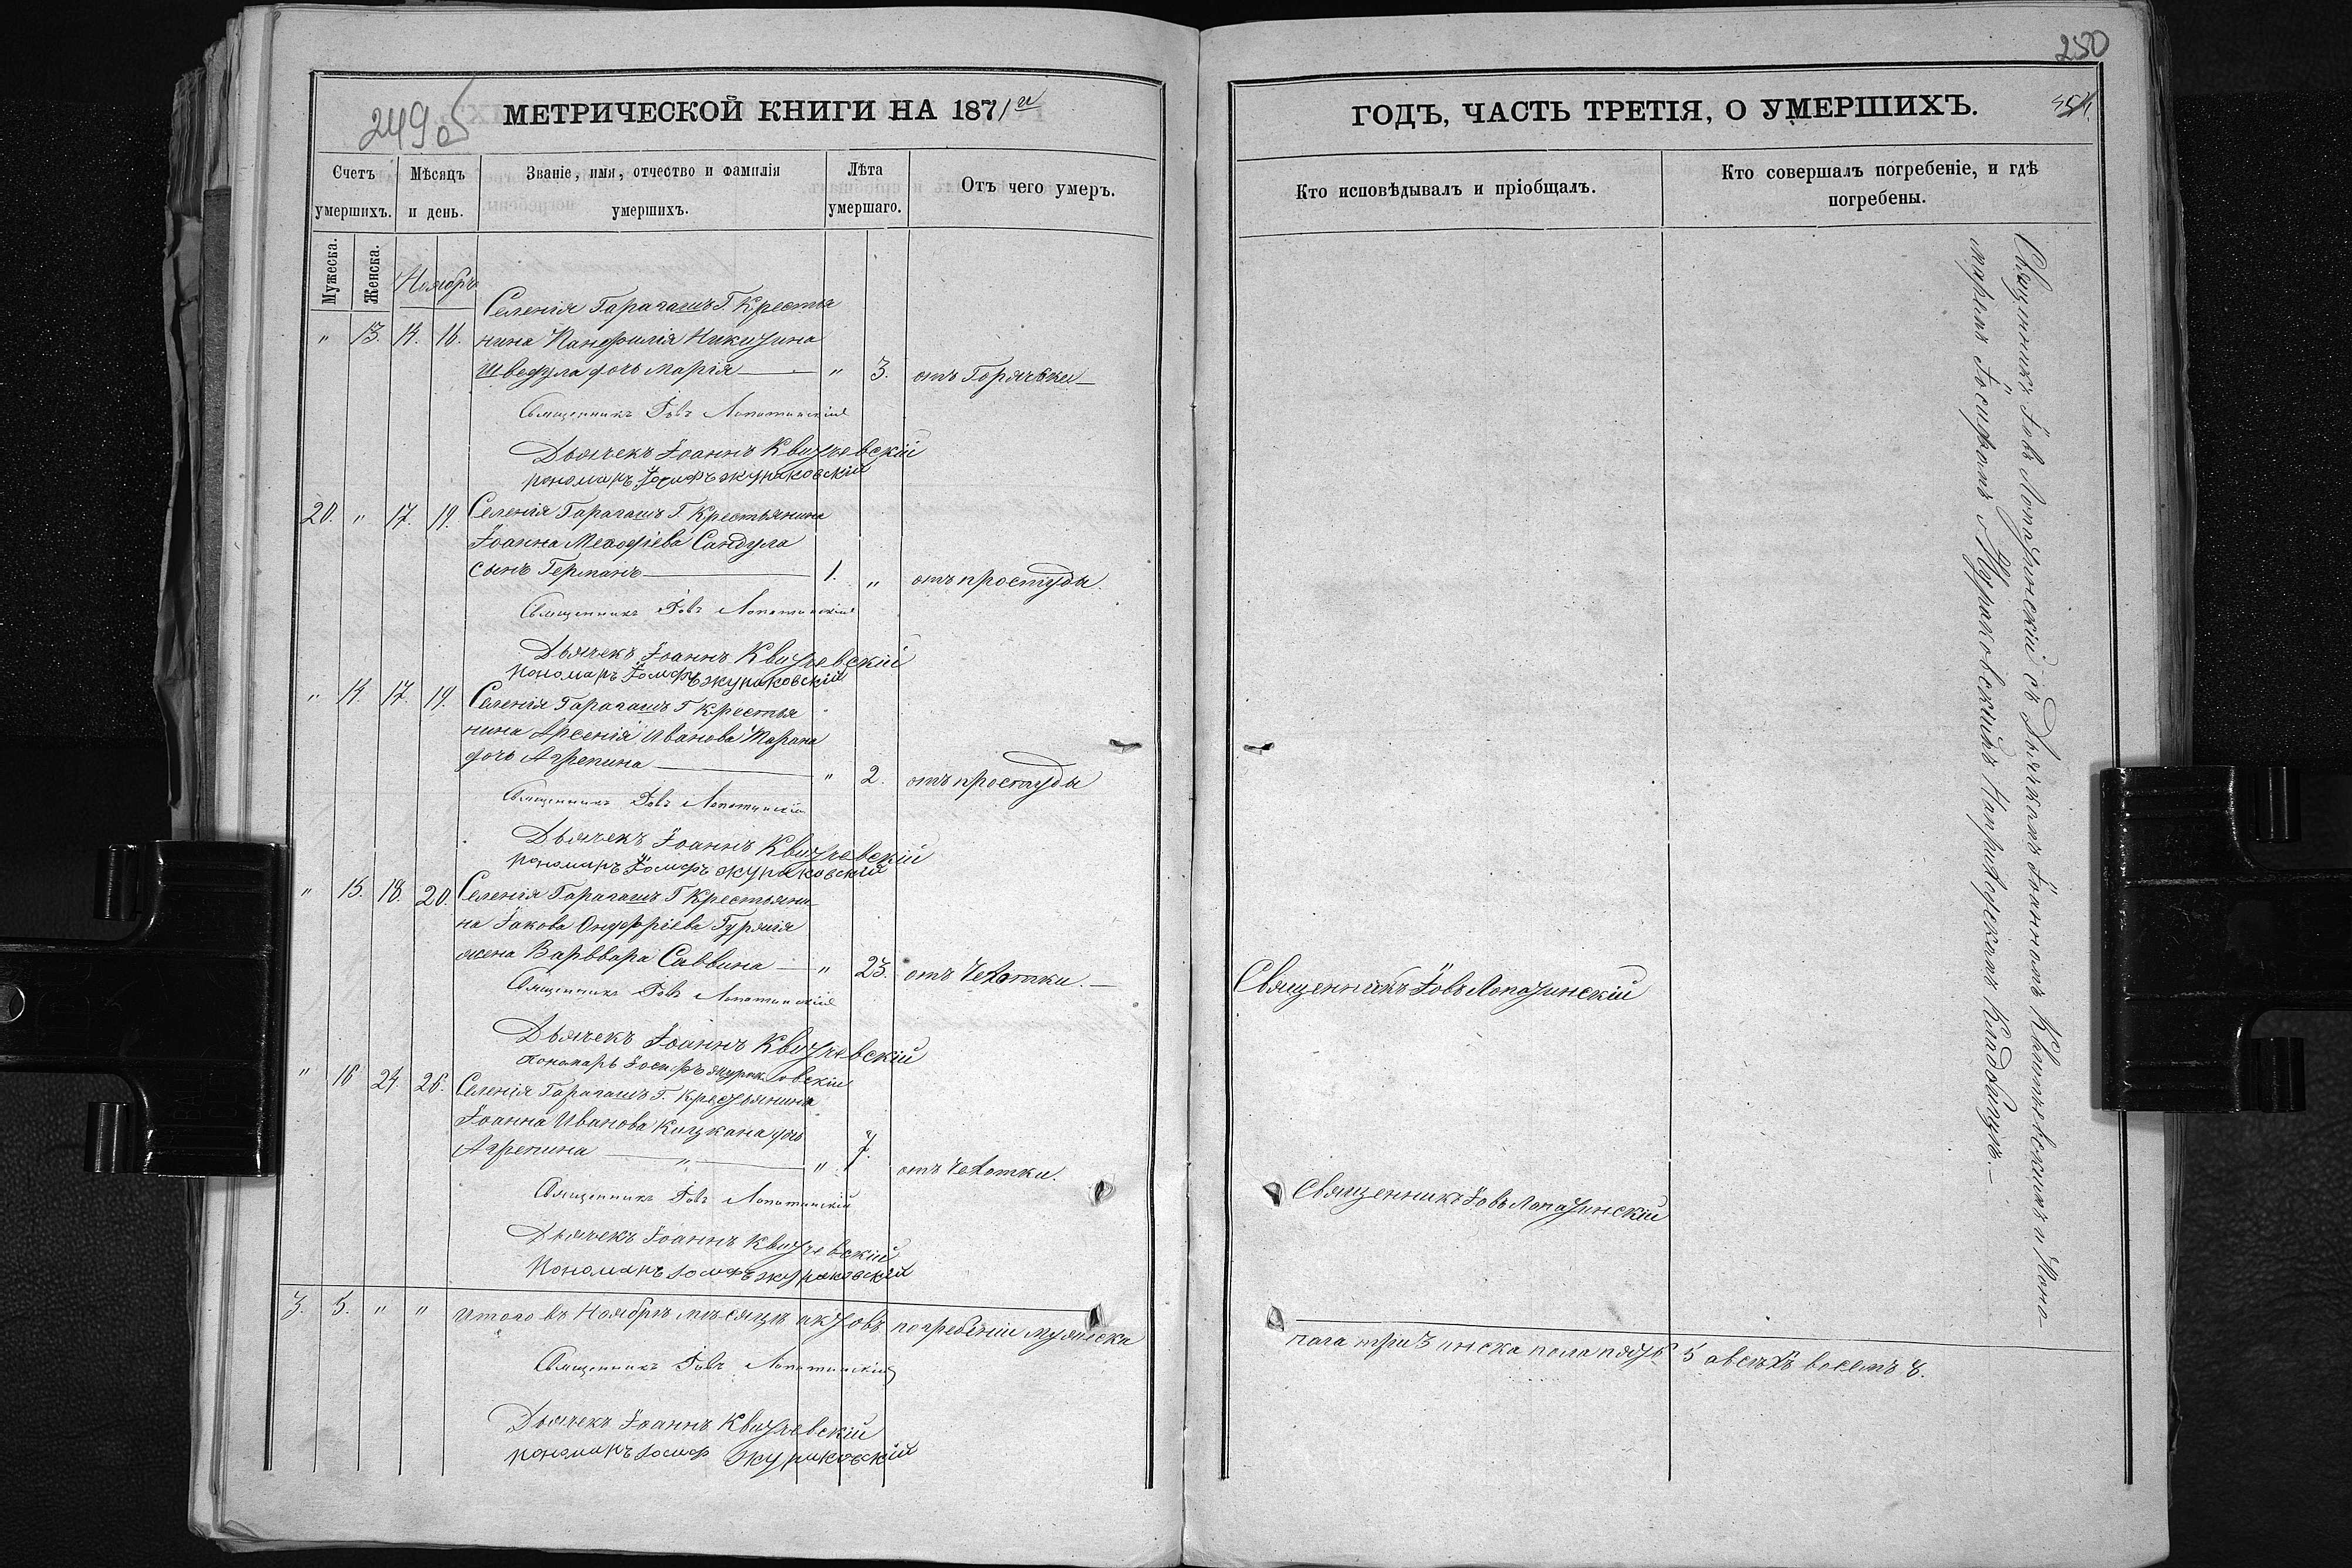 249 об
МЕТРИЧЕСКОЙ КНИГИ НА 1871й
Счетъ умершихъ.
Мѣсяцъ и день.
Званіе, имя, отчество и фамилія умершихъ.
Лѣта умершаго.
Отъ чего умеръ.
Мужеска.
Женска.
Ноябрь
Селенія Гарагашъ Г. Крестья
" 13. 14. 16. нина Панфилія Никитина
Шведула дочь Марія — " 3. отъ Горячки —
Священникъ Іовъ Лопатинскій
Дьячекъ Іоаннъ Квитчевскій
пономарь Іосифъ Жураковскій
20. " 17. 19. Селенія Гарагашъ Г. Крестьянина
Іоанна Меѳодіева Сандула
сынъ Германъ — 1. " отъ простуды.
Священникъ Іовъ Лопатинскій
Дьячекъ Іоаннъ Квитчевскій
пономарь Іосифъ Жураковскій
" 14. 17. 19. Селенія Гарагашъ Г Крестья
нина Арсенія Иванова
дочь Агрепина — " 2. отъ простуды
Священникъ Іовъ Лопатинскій
Дьячекъ Іоаннъ Квитчевскій
пономарь Іосифъ Жураковскій
" 15. 18. 20. Селенія Гарагашъ Г Крестьяни
на Іакова Онуфріева
жена Варввара Саввина — " 23. отъ Чехотки. —
Священникъ Іовъ Лопатинскій
Дьячекъ Іоаннъ Квитчевскій
пономарь Іосифъ Жураковскій
" 16 24. 26. Селенія Гарагашъ Г. Крестьянина
Іоанна Иванова Кицкана дочь
Агрепина — " — " 7. отъ Чехотки.
Священникъ Іовъ Лопатинскій
Дьячекъ Іоаннъ Квитчевскій
Пономарь Іосифъ Жураковскій
3. 5. " " Итого въ Ноябрѣ мѣсяцѣ актовъ погребеніи мужеска
Священникъ Іовъ Лопатинскій
Дьячекъ Іоаннъ Квитчевскій
пономарь Іосиф Жураковскій
250
ГОДЪ, ЧАСТЬ ТРЕТІЯ, О УМЕРШИХЪ.
Кто исповѣдывалъ и пріобщалъ.
Кто совершалъ погребеніе, и гдѣ погребены.
Священникъ Іовъ Лопатинскій съ Дьячкомъ Іоанномъ Квитчевскимъ и Поно-
маремъ Іосифомъ Жураковскимъ на приходскомъ Кладбищѣ. —
Священникъ Іовъ Лопатинскій
Священникъ Іовъ Лопатинскій
пола три 3 женска пола пять 5 а всѣхъ восемь 8.